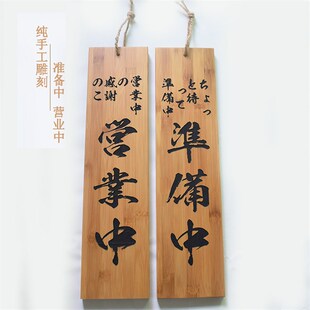 纯手工雕刻
准备中 营业中
営業中
の
感謝
のこ
営業中
ちょっ
と待
って
準備中
準備中